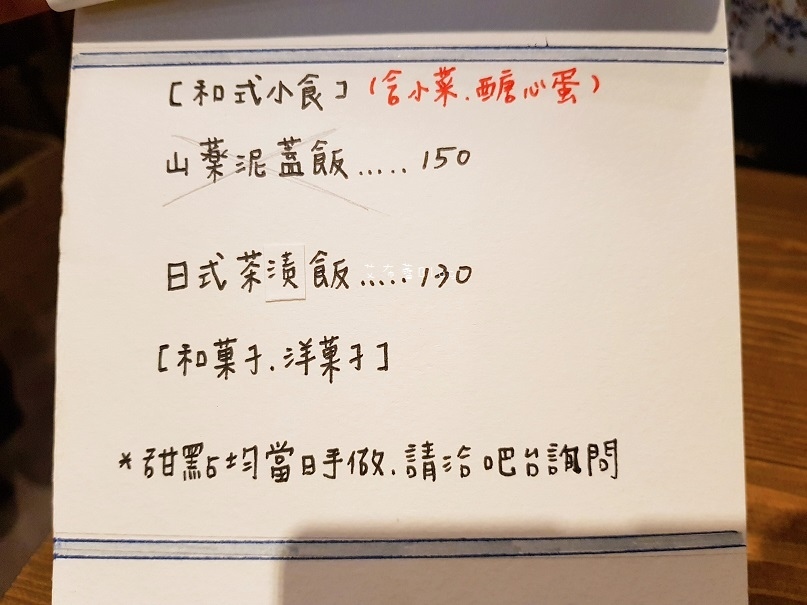 [和式小食](含小菜.醣心蛋)
山藥泥蓋飯.....150
日式茶漬飯.....130
[和菓子.洋菓子]
*甜點均當日手做.請洽吧台詢問